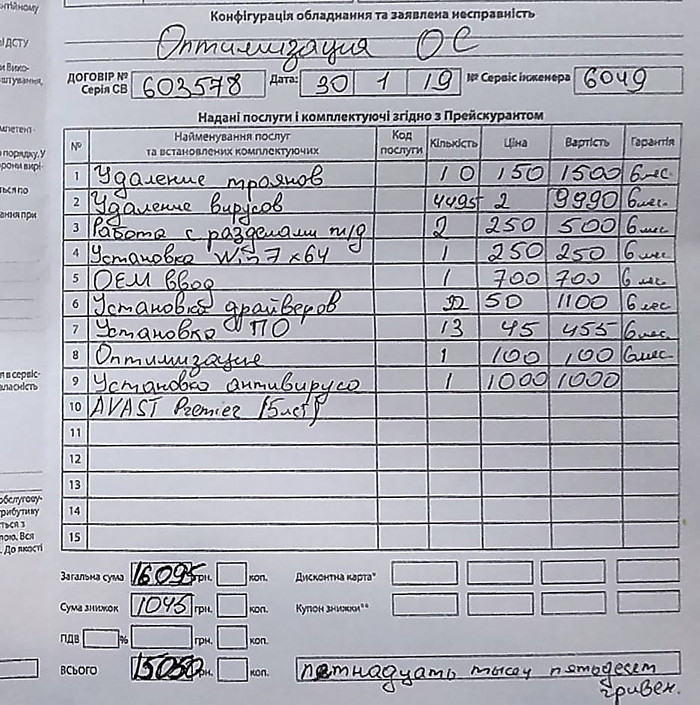 нтійному
Конфігурація обладнання та заявлена несправність
Оптимизация ОС
ДОГОВІР № Серія СВ 603578 Дата: 30 1 19 № Сервіс інженера 6049
Надані послуги і комплектуючі згідно з Прейскурантом
№ Найменування послуг та встановлених комплектуючих Код послуги Кількість Ціна Вартість Гарантія
1 Удаление троянов 10 150 1500 6 мес.
2 Удаление вирусов 4495 2 9990 6 мес.
3 Работа с разделами ж/д 2 250 500 6 мес
4 Установка Win 7 x64 1 250 250 6 мес
5 ОЕМ ввод 1 700 700 6 мес
6 Установка драйверов 22 50 1100 6 мес
7 Установка ПО 13 45 455 6 мес.
8 Оптимизация 1 100 100 6 мес.
9 Установка антивируса 1 1000 1000
10 AVAST Premier (5лет)
11
12
13
14
15
Загальна сума 16095 грн. коп. Дисконтна карта*
Сума знижок 1045 грн. коп. Купон знижки**
ПДВ % грн. коп.
ВСЬОГО 15050 грн. коп. пятнадцать тысяч пятьдесят
гривен.